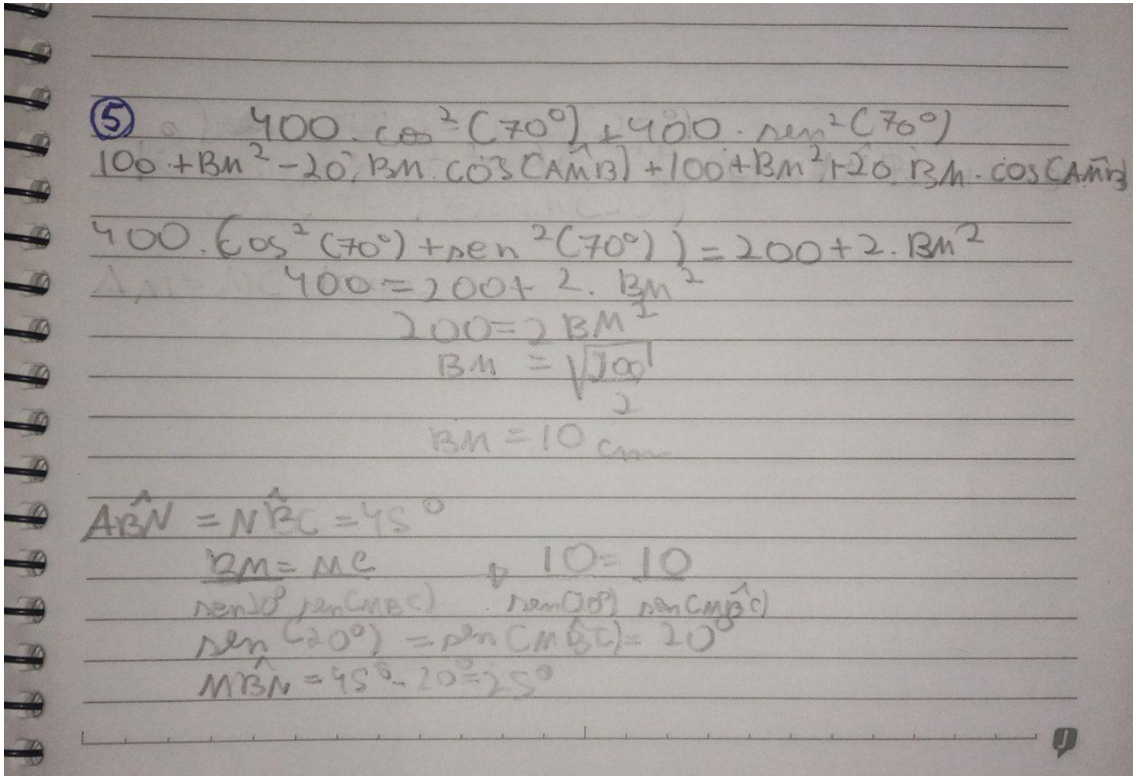 5 400 . cos² (70°) + 400 . sen² (70°)
100 + BM² - 20 . BM . cos(AM̂B) + 100 + BM² + 20 . BM . cos(AM̂B)
400 . (cos² (70°) + sen² (70°)) = 200 + 2 . BM²
400 = 200 + 2 . BM²
200 = 2 BM²
BM = √200
2
BM = 10 cm
AB̂N = NB̂C = 45°
BM = MC 10 = 10
sen20° sen(MBC) sen(20°) sen(MB̂C)
sen (20°) = sen (MB̂C) = 20°
MB̂N = 45° - 20° = 25°